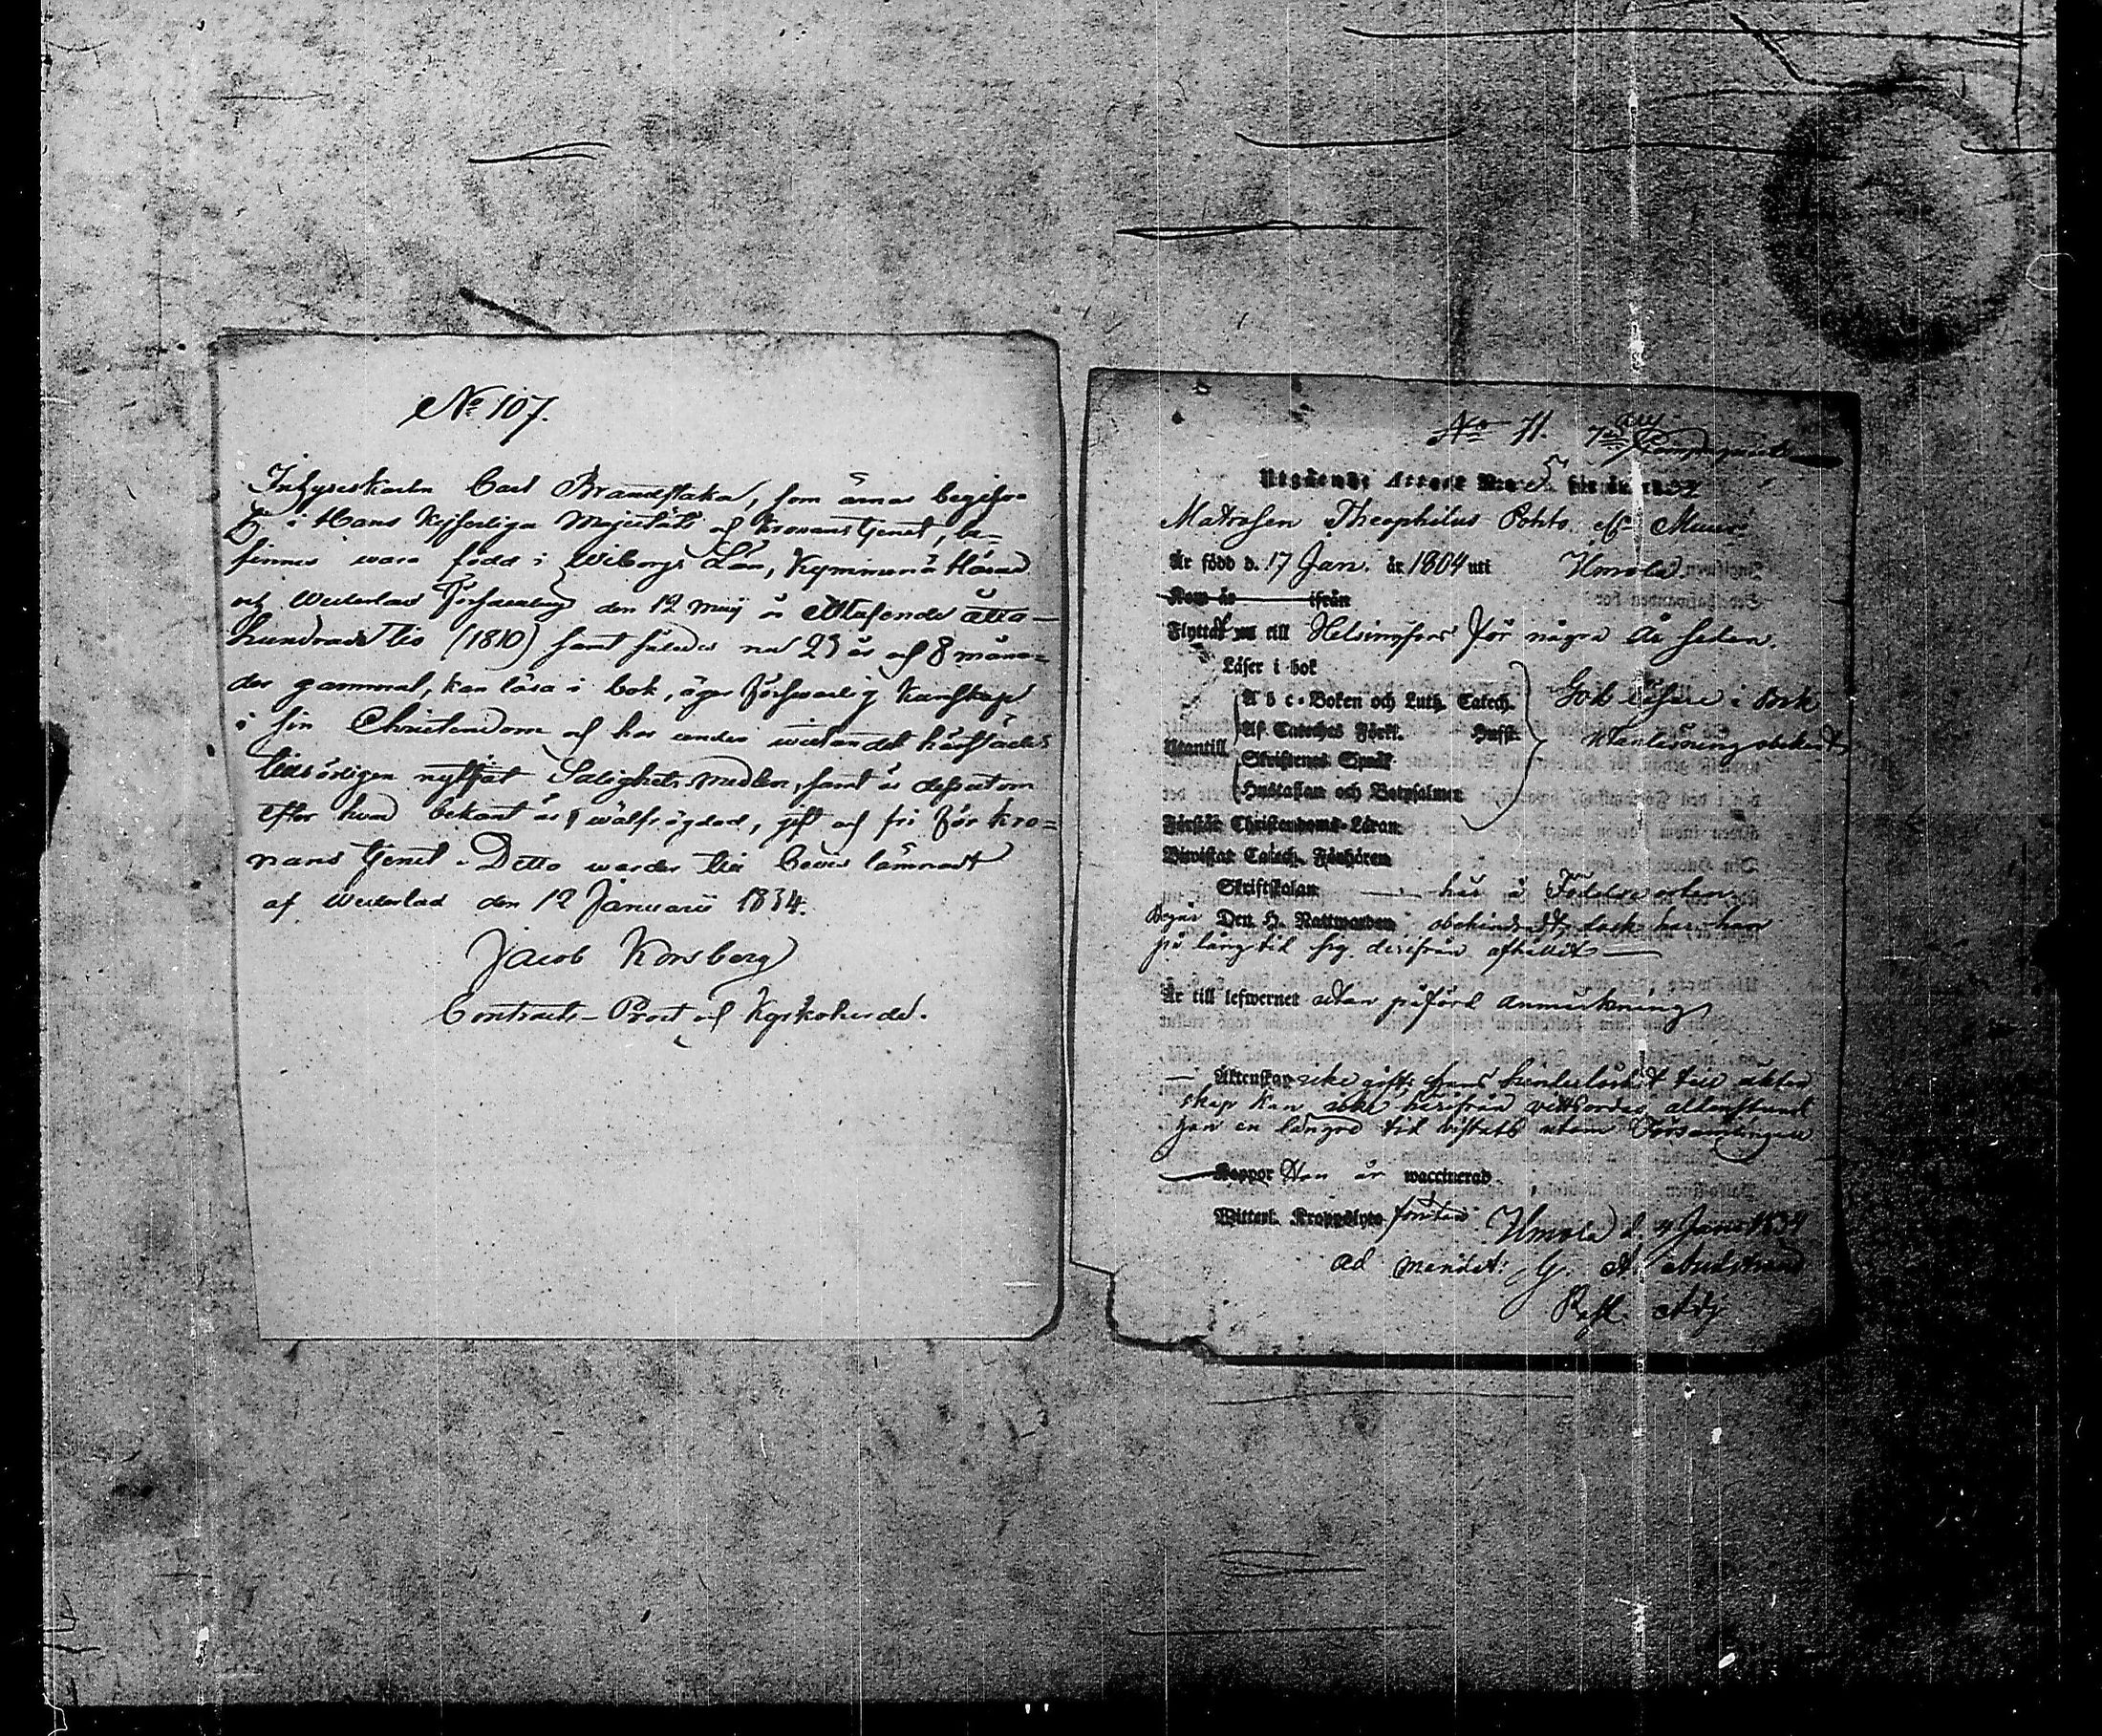 No 107.
Inhyseskarln Carl Brandstaka, som ärnar begifva
sig i Hans Kejserliga Majestäts och Kronans tjenst, be-
finnes wara född i Wiborgs Län, Kymmenä Härad
och Wederlax Församling den 12 Maij år Ettusende åtta-
hundrade tio (1810) samt således nu 23 år och 8 måna-
der gammal, kan läsa i bok, äger försvarlig kunskap
i sin Christendom och har under wistandet härstädes
tidsenligen nyttjat Salighets medlen, samt är dessutom
efter hvad bekant är wälfrägdad, gift och fri för kro-
nans tjenst. Detta warder till bewis lämnadt
af Wederlax den 12 Januarii 1834.
Jacob Korsberg
Contracts-Prost och Kyrkoherde.
No 71. 7de Compagniet
Utgående Attest N:o 5 för år 1834
Matrosen Theophilus Pohto
Är född d. 17 Jan. år 1804 uti Ilmola.
Kom år ifrån
Flyttat till Helsingfors för några år sedan.
Läser i bok
A b c-Boken och Luth. Catech.
God läsare i bok
Af Cateches Förkl. Hust.
utanläsning obekant
Utantill
Skriftenes Språk
Hustaflan och Botpsalmer
Förstår Christendoms-Läran
Biwistat Catech. Förhören
Skriftskolan här å Födelse orten
Begår Den H. Nattwarden obehindradt, dock har han
på lång tid sig derifrån afhållit
Är till lefwernet utan påförd anmärkning
Äktenskap icke gift; hans hinderlöshet till äkten
skap kan icke härifrån vittsordas, allenstund
han en längre tid vistats utom Församlingen
Koppor Han är waccinerad
Witterl. Kroppslyte
Ilmola d. 4 Jan. 1834
ad mandat: G. A.
Past. Adj